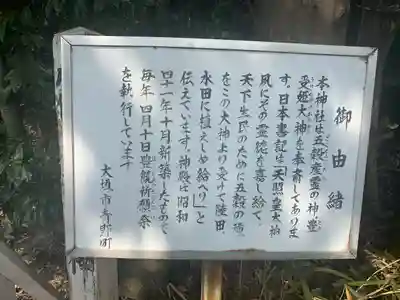 御由緒
本神社は五穀産霊の神豊
受姫大神を奉斎してありま
す。日本書記は「天照皇大神
夙にその霊徳を喜し給て、
天下生民のために五穀の
をこの大神より受けて陸田、
水田に植えしめ給へり」と
伝えています。神殿は昭和
四十一年十月新築したもので
毎年四月十日豊穀祈願祭
を執行しています
大垣市青野町